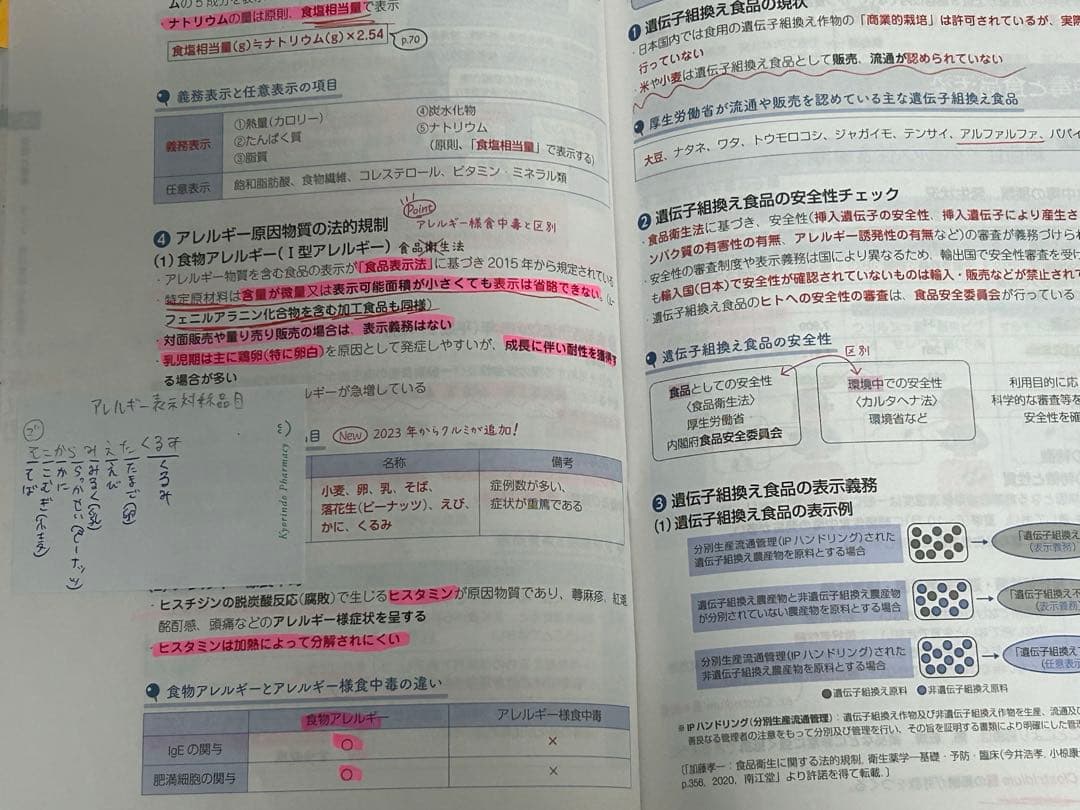 ナトリウムの量は原則、食塩相当量で表示
食塩相当量(g)≒ナトリウム(g)×2.54
p.70
義務表示と任意表示の項目
義務表示
①熱量(カロリー)
②たんぱく質
③脂質
④炭水化物
⑤ナトリウム
(原則、「食塩相当量」で表示する)
任意表示
飽和脂肪酸、食物繊維、コレステロール、ビタミン・ミネラル類
Point
アレルギー様食中毒と区別
4 アレルギー原因物質の法的規制
(1) 食物アレルギー(Ⅰ型アレルギー)
食品衛生法
・アレルギー物質を含む食品の表示が「食品表示法」に基づき2015年から規定されている
・特定原材料は含量が微量又は表示可能面積が小さくても表示は省略できない。
フェニルアラニン化合物を含む加工食品も同様)
・対面販売や量り売り販売の場合は、表示義務はない
・乳児期は主に鶏卵(特に卵白)を原因として発症しやすいが、成長に伴い耐性を獲得す
る場合が多い
ルギーが急増している
アレルギー表示対象品目
そこからみえたくるみ
くるみ
たまご(卵)
えび
みるく(乳)
らっかせい(ピーナッツ)
かに
こむぎ(小麦)
そば
Kyorindo Pharmacy
品目
New
2023年からクルミが追加!
名称
備考
小麦、卵、乳、そば、
落花生(ピーナッツ)、えび、
かに、くるみ
症例数が多い、
症状が重篤である
・ヒスチジンの脱炭酸反応(腐敗)で生じるヒスタミンが原因物質であり、蕁麻疹、紅潮
酩酊感、頭痛などのアレルギー様症状を呈する
・ヒスタミンは加熱によって分解されにくい
食物アレルギーとアレルギー様食中毒の違い
食物アレルギー
アレルギー様食中毒
IgEの関与
○
×
肥満細胞の関与
○
×
1 遺伝子組換え食品の現状
・日本国内では食用の遺伝子組換え作物の「商業的栽培」は許可されているが、実際
行っていない
・米や小麦は遺伝子組換え食品として販売、流通が認められていない
厚生労働省が流通や販売を認めている主な遺伝子組換え食品
大豆、ナタネ、ワタ、トウモロコシ、ジャガイモ、テンサイ、アルファルファ、パパイ
2 遺伝子組換え食品の安全性チェック
・食品衛生法に基づき、安全性(挿入遺伝子の安全性、挿入遺伝子により産生さ
ンパク質の有害性の有無、アレルギー誘発性の有無など)の審査が義務づけら
・安全性の審査制度や表示義務は国により異なるため、輸出国で安全性審査を受け
も輸入国(日本)で安全性が確認されていないものは輸入・販売などが禁止されて
・遺伝子組換え食品のヒトへの安全性の審査は、食品安全委員会が行っている
遺伝子組換え食品の安全性
区別
食品としての安全性
〈食品衛生法〉
厚生労働省
内閣府食品安全委員会
環境中での安全性
〈カルタヘナ法〉
環境省など
利用目的に応
科学的な審査等を
安全性を確
3 遺伝子組換え食品の表示義務
(1) 遺伝子組換え食品の表示例
分別生産流通管理(IPハンドリング)された
遺伝子組換え農産物を原料とする場合
「遺伝子組換え
(表示義務)
遺伝子組換え農産物と非遺伝子組換え農産物
が分別されていない農産物を原料とする場合
「遺伝子組換え不
(表示義務)
分別生産流通管理(IPハンドリング)された
非遺伝子組換え農産物を原料とする場合
「遺伝子組換え
(任意表示
●遺伝子組換え原料 ●非遺伝子組換え原料
※IPハンドリング(分別生産流通管理):遺伝子組換え作物及び非遺伝子組換え作物を生産、流通及び
善良なる管理者の注意をもって分別及び管理を行い、その旨を証明する書類により明確にした管理
[「加藤孝一:食品衛生に関する法的規制, 衛生薬学−基礎・予防・臨床(今井浩孝, 小椋康
p.356, 2020, 南江堂」より許諾を得て転載.]